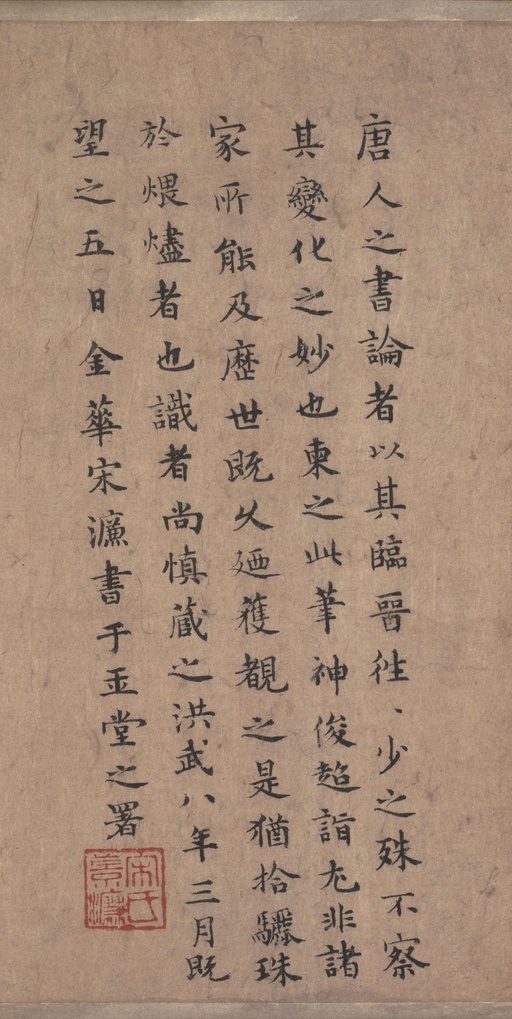 唐人之書論者以其臨晉徃〻少之殊不察
其變化之妙也柬之此筆神俊超詣尤非諸
家所能及歷世既久廼獲覩之是猶拾驪珠
於煨燼者也識者尚慎藏之洪武八年三月既
望之五日金華宋濂書于玉堂之署
宋氏景濂